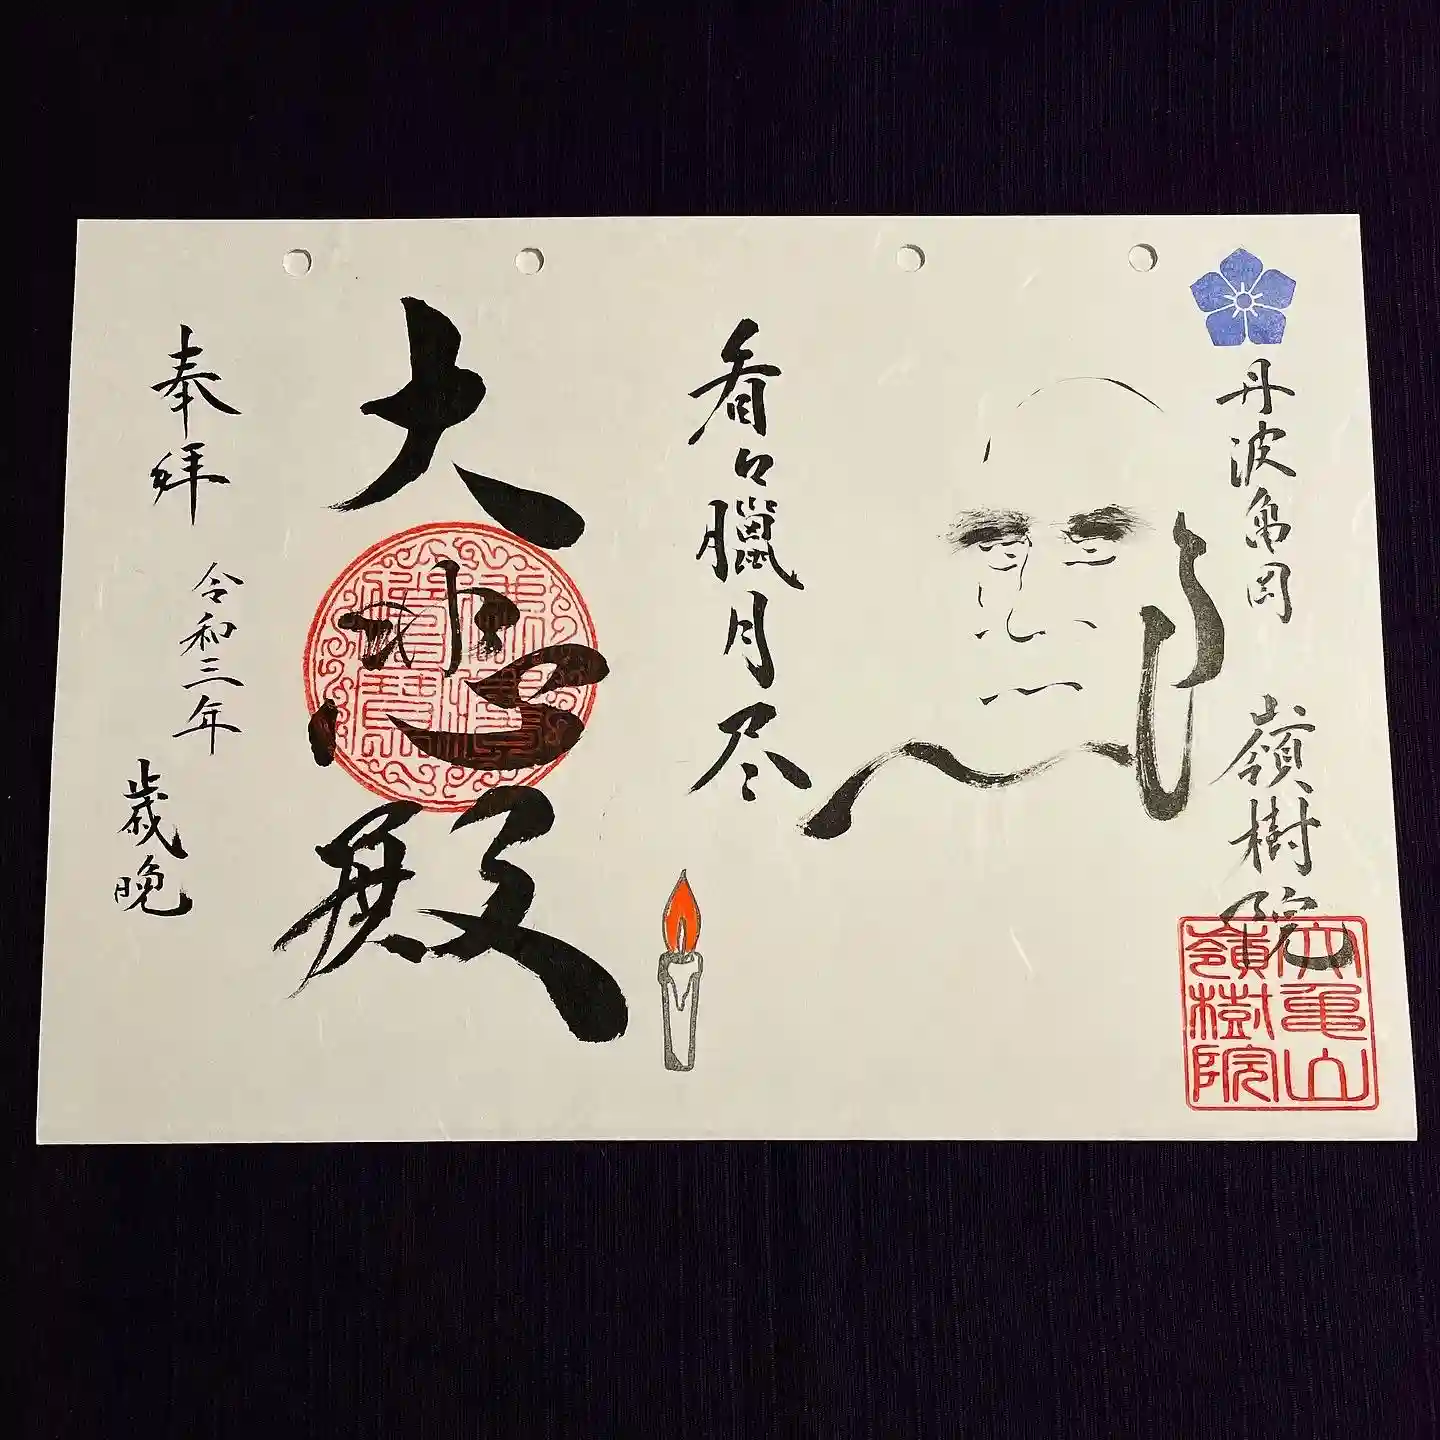 丹波亀岡 嶺樹院
六亀山
嶺樹院
看々臘月尽
大悲殿
奉拝
令和三年
歳晩